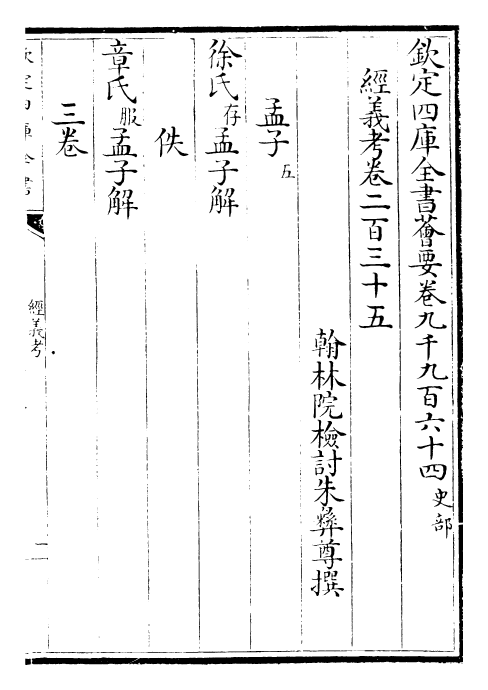 欽定四庫全書薈要卷九千九百六十四史部
經義考卷二百三十五
翰林院檢討朱彝尊撰
孟子五
徐氏存孟子解
佚
章氏服孟子解
三卷
欽定四庫全書
經義考